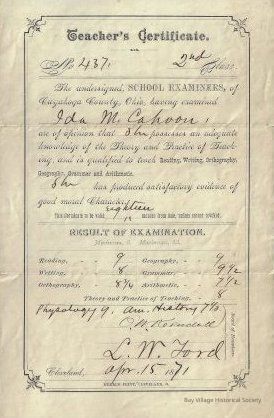 Teacher's Certificate.
No. 437. 2nd Class.
The undersigned, SCHOOL EXAMINERS, of
Cuyahoga County, Ohio, having examined
Ida M. Cahoon,
are of opinion that She possesses an adequate
knowledge of the Theory and Practice of Teach-
ing, and is qualified to teach Reading, Writing, Orthography,
Geography, Grammar and Arithmetic.
She has produced satisfactory evidence of
good moral Character.
This Certificate to be valid eighteen months from date, unless sooner revoked.
RESULT OF EXAMINATION.
Minimum, Maximum, 10.
Reading, 9 Geography, 9
Writing, 8 Grammar, 9 1/2
Orthography, 8 1/4 Arithmetic, 7 1/2
Theory and Practice of Teaching, 8
Physiology 9, Am. History 7 1/2
Board of Examiners.
L. W. Ford
Cleveland, Apr. 15 1871
Bay Village Historical Society